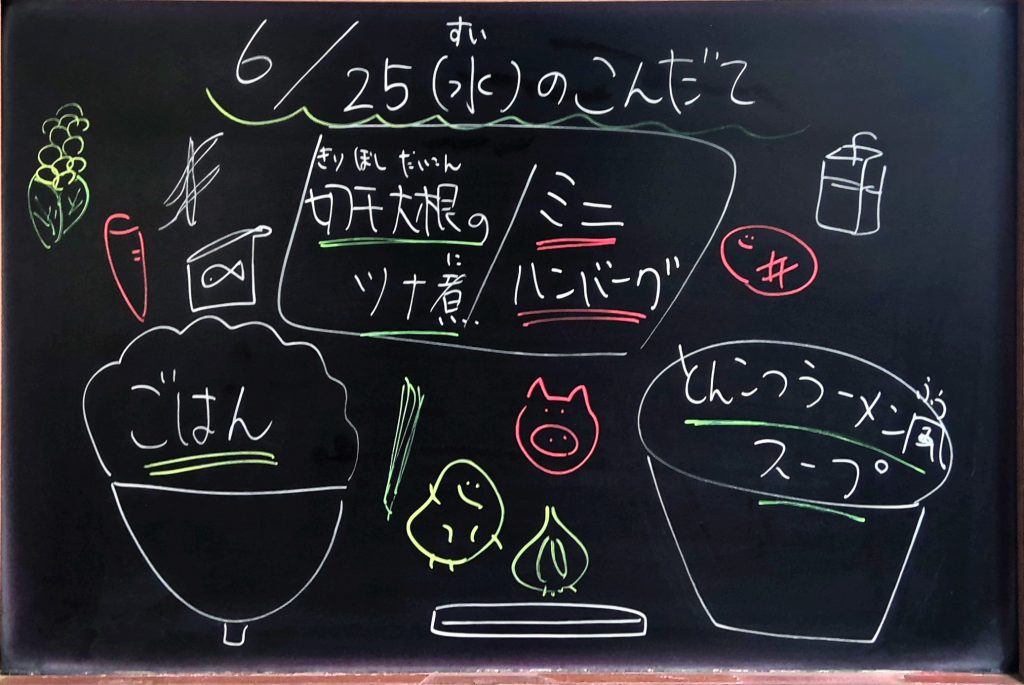 すい
6/25(水)のこんだて
きりぼしだいこん
切干大根の
に
ツナ煮
ミニ
ハンバーグ
ごはん
とんこつラーメン風
ふう
スープ